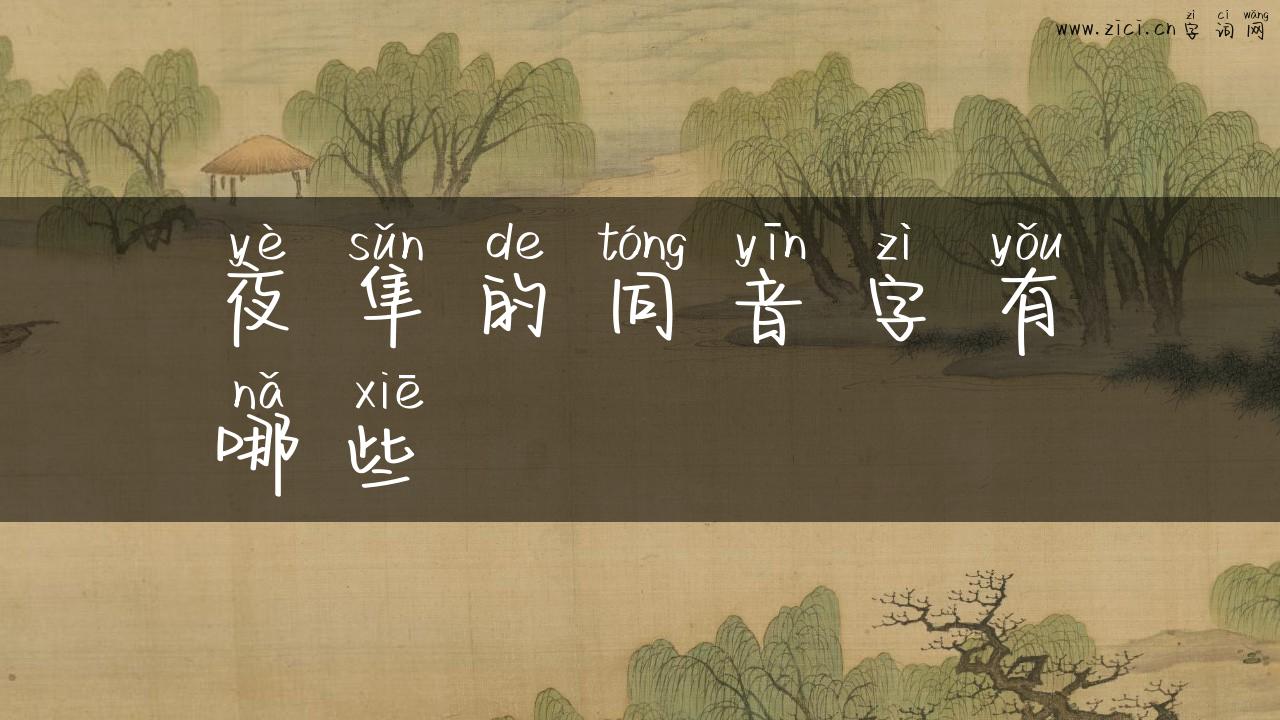 zì cí wǎng
www.zici.cn字词网
yè sǔn de tóng yīn zì yǒu
夜隼的同音字有
nǎ xiē
哪些